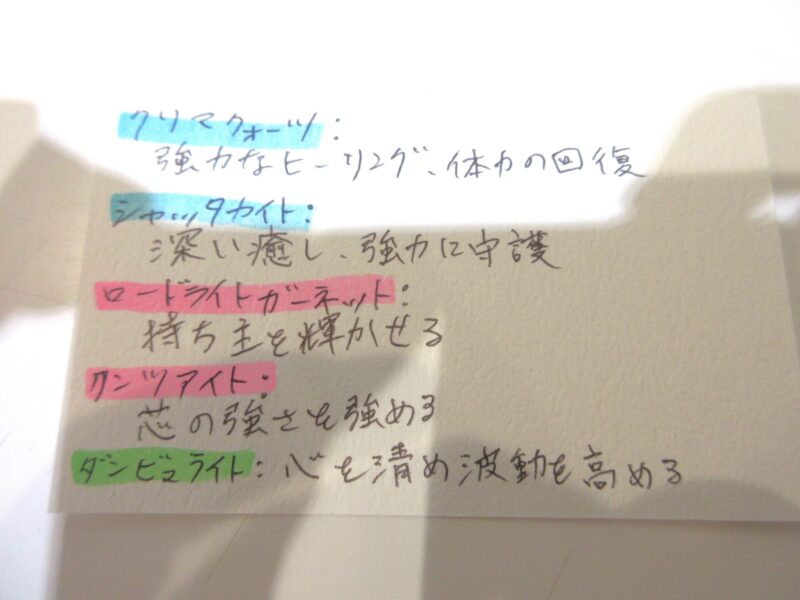 クリマクォーツ:
強力なヒーリング、体力の回復
シャッタカイト:
深い癒し、強力に守護
ロードライトガーネット:
持ち主を輝かせる
クンツァイト:
芯の強さを強める
ダンビュライト:心を清め波動を高める